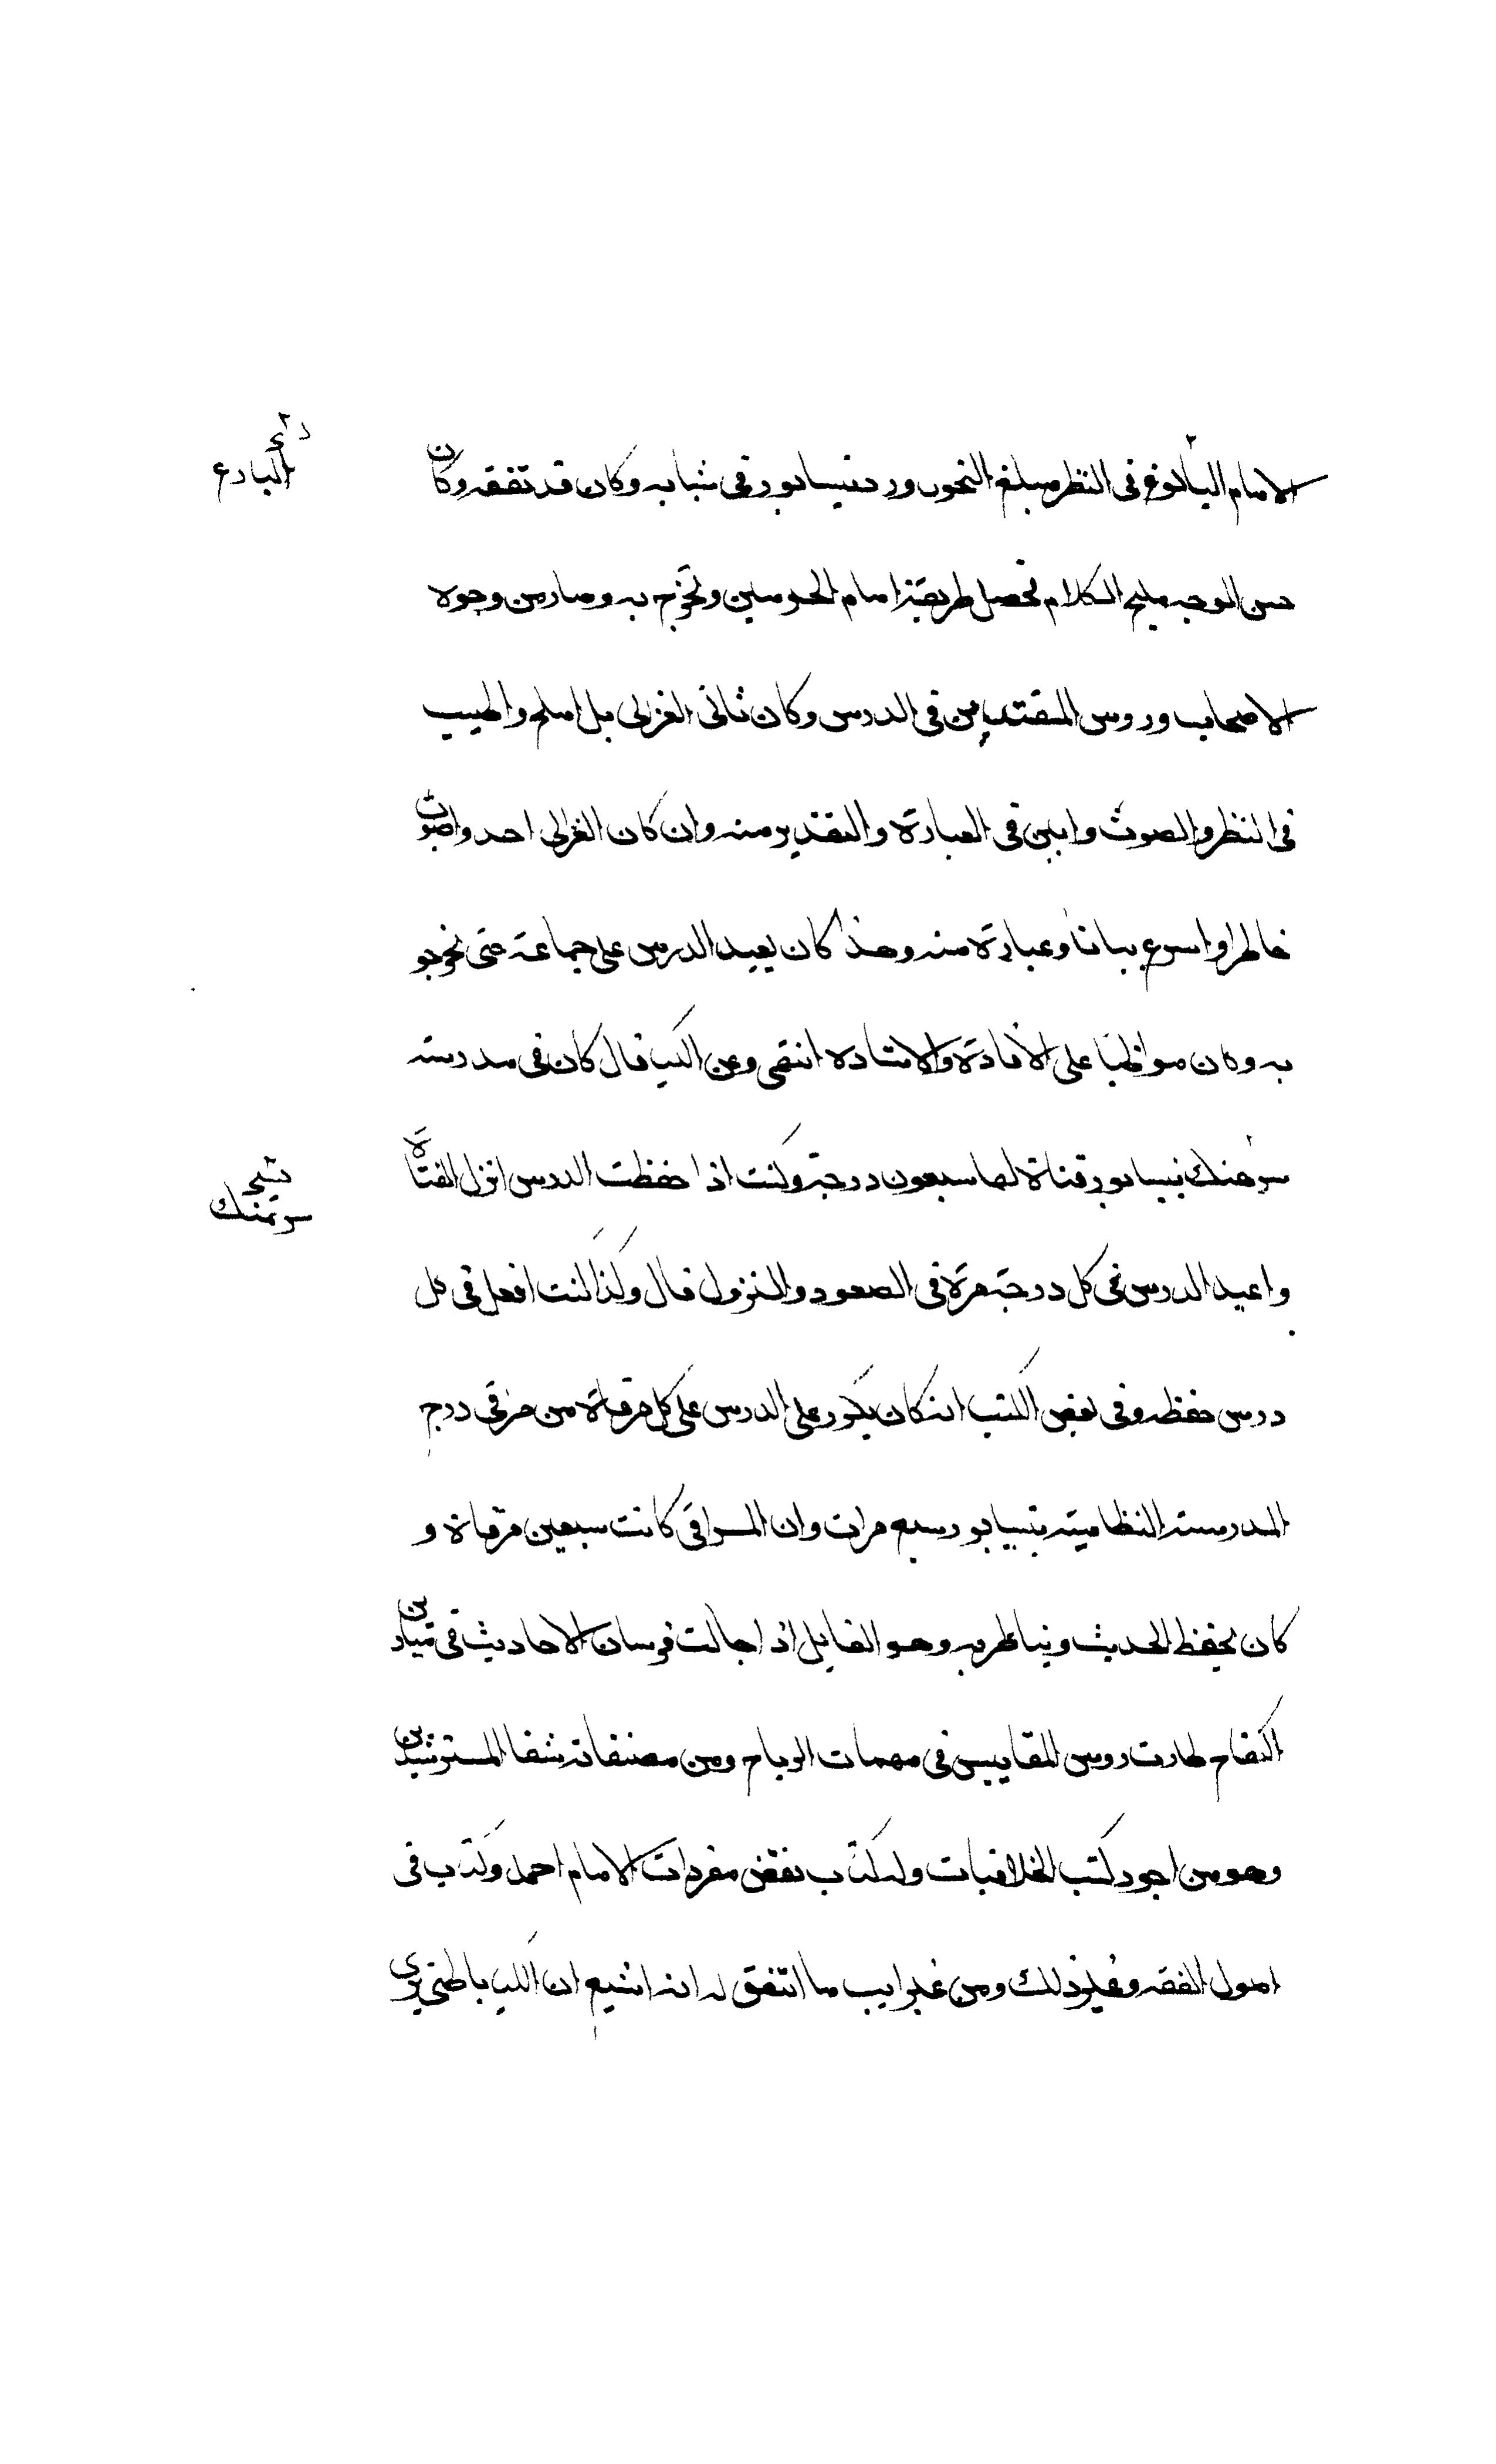 الامام البالوغ فى النظر مبلغ الفحول ورد نيسابور فى شبابه وكان قد تفقه وكان
حسن الوجه مليح الكلام فحصل طريقة امام الحرمين وتخرج به وصار من وجوه
الاصحاب وروس المقتدين فى الدرس وكان ثانى الغزالى بل املح واطيب
فى النظر والصوت وابين فى العبارة والتقدير منه وان كان الغزالى احد واصوب
خاطرا واسرع بيانا وعبارة منه وهذا كان يعيد الدرس على جماعة حتى تخرجو
به وكان مواظبا على الافادة والاستاده انتهى وعن الكيا قال كان فى مدرسة
سرهنك نيسابور قناة لها سبعون درجة وكنت اذا حفظت الدرس انزل القناة
واعيد الدرس فى كل درجة مرة فى الصعود والنزول قال وكذا كنت افعل فى كل
درس حفظه وفى بعض الكتب انه كان يكرر على الدرس على كل مرقاة من مرقى درج
المدرسة النظامية بنيسابور سبع مرات وان المراقى كانت سبعين مرقاة و
كان يحفظ الحديث ويناظر به وهو القايل اذا جالت فرسان الاحاديث فى ميادين
الكفاح طارت روس المقاييس فى مهمات الرياح ومن مصنفاته شفا المسترشدين
وهو من اجود كتب الخلافيات وله كتاب نقض مفردات الامام احمد وكتاب فى
اصول الفقه وغير ذلك ومن غرايب ما اتفق له انه اشيع ان الكيا باطنى يرى
البارع
سرهنك